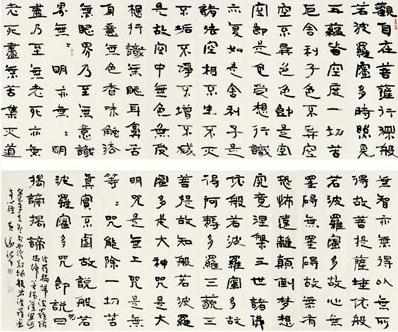 觀自在菩薩行深般
若波羅蜜多時照見
五蘊皆空度一切苦
厄舍利子色不異空
空不異色色即是空
空即是色受想行識
亦復如是舍利子是
諸法空相不生不滅
不垢不淨不增不減
是故空中無色無受
想行識無眼耳鼻舌
身意無色聲香味觸法
無眼界乃至無意識
界無無明亦無無明
盡乃至無老死亦無
老死盡無苦集滅道
無智亦無得以無所
得故菩提薩埵依般
若波羅蜜多故心無
罣礙無罣礙故無有
恐怖遠離顛倒夢想
究竟涅槃三世諸佛
依般若波羅蜜多故
得阿耨多羅三藐三
菩提故知般若波羅
蜜多是大神咒是大
明咒是無上咒是無
等〻咒能除一切苦
真實不虛故說般若
波羅蜜多咒即說咒曰
揭諦揭諦